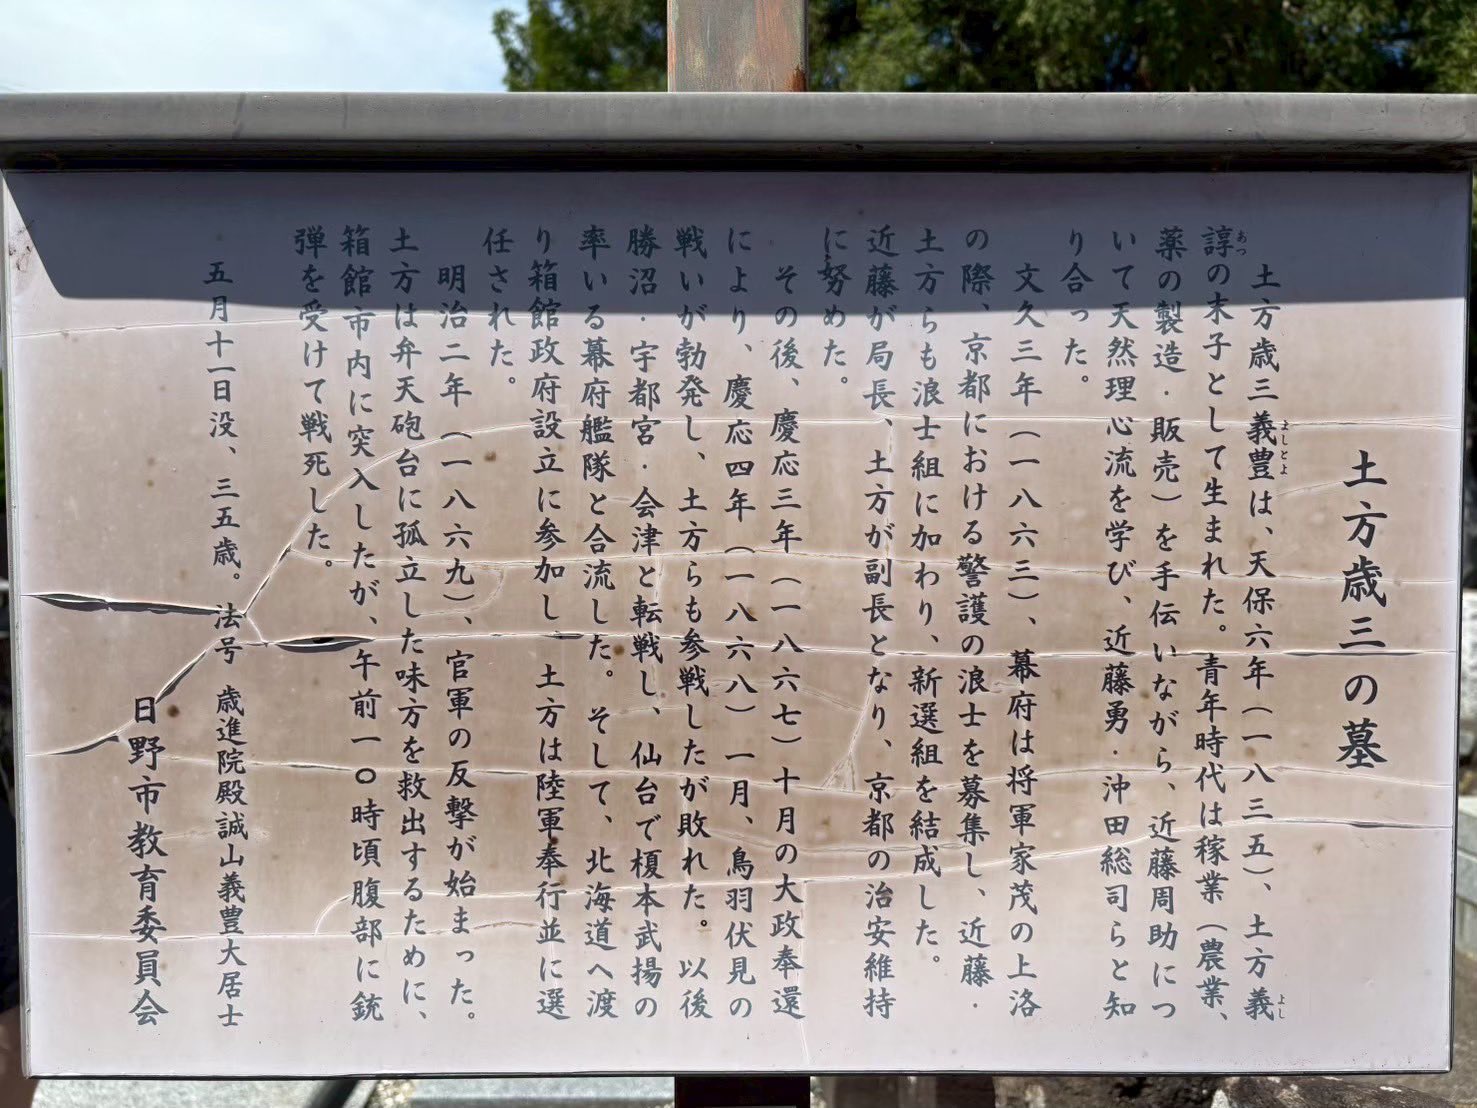 土方歳三の墓
土方歳三義豊は、天保六年(一八三五)、土方義
よしとよ
よし
諄の末子として生まれた。青年時代は稼業(農業、
あつ
薬の製造・販売)を手伝いながら、近藤周助につ
いて天然理心流を学び、近藤勇・沖田総司らと知
り合った。
文久三年(一八六三)、幕府は将軍家茂の上洛
の際、京都における警護の浪士を募集し、近藤・
土方らも浪士組に加わり、新選組を結成した。
近藤が局長、土方が副長となり、京都の治安維持
に努めた。
その後、慶応三年(一八六七)十月の大政奉還
により、慶応四年(一八六八)一月、鳥羽伏見の
戦いが勃発し、土方らも参戦したが敗れた。以後
勝沼・宇都宮・会津と転戦し、仙台で榎本武揚の
率いる幕府艦隊と合流した。そして、北海道へ渡
り箱館政府設立に参加し 土方は陸軍奉行並に選
任された。
明治二年(一八六九)、官軍の反撃が始まった。
土方は弁天砲台に孤立した味方を救出するために、
箱館市内に突入したが、午前一〇時頃腹部に銃
弾を受けて戦死した。
五月十一日没、三五歳。法号 歳進院殿誠山義豊大居士
日野市教育委員会